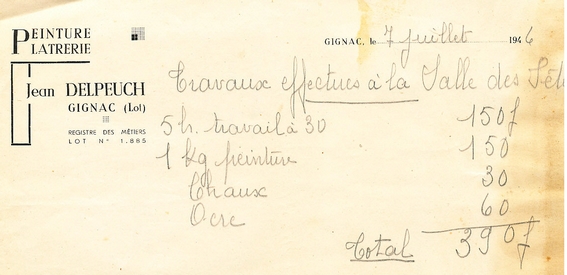 PEINTURE
PLATRERIE
Jean DELPEUCH
GIGNAC (Lot)
REGISTRE DES MÉTIERS
LOT N° 1.885
GIGNAC, le 7 juillet 1946
Travaux effectués à la Salle des Fêt
5 h. travail à 30 150f
1 kg peinture 150
Chaux 30
Ocre 60
Total 390f